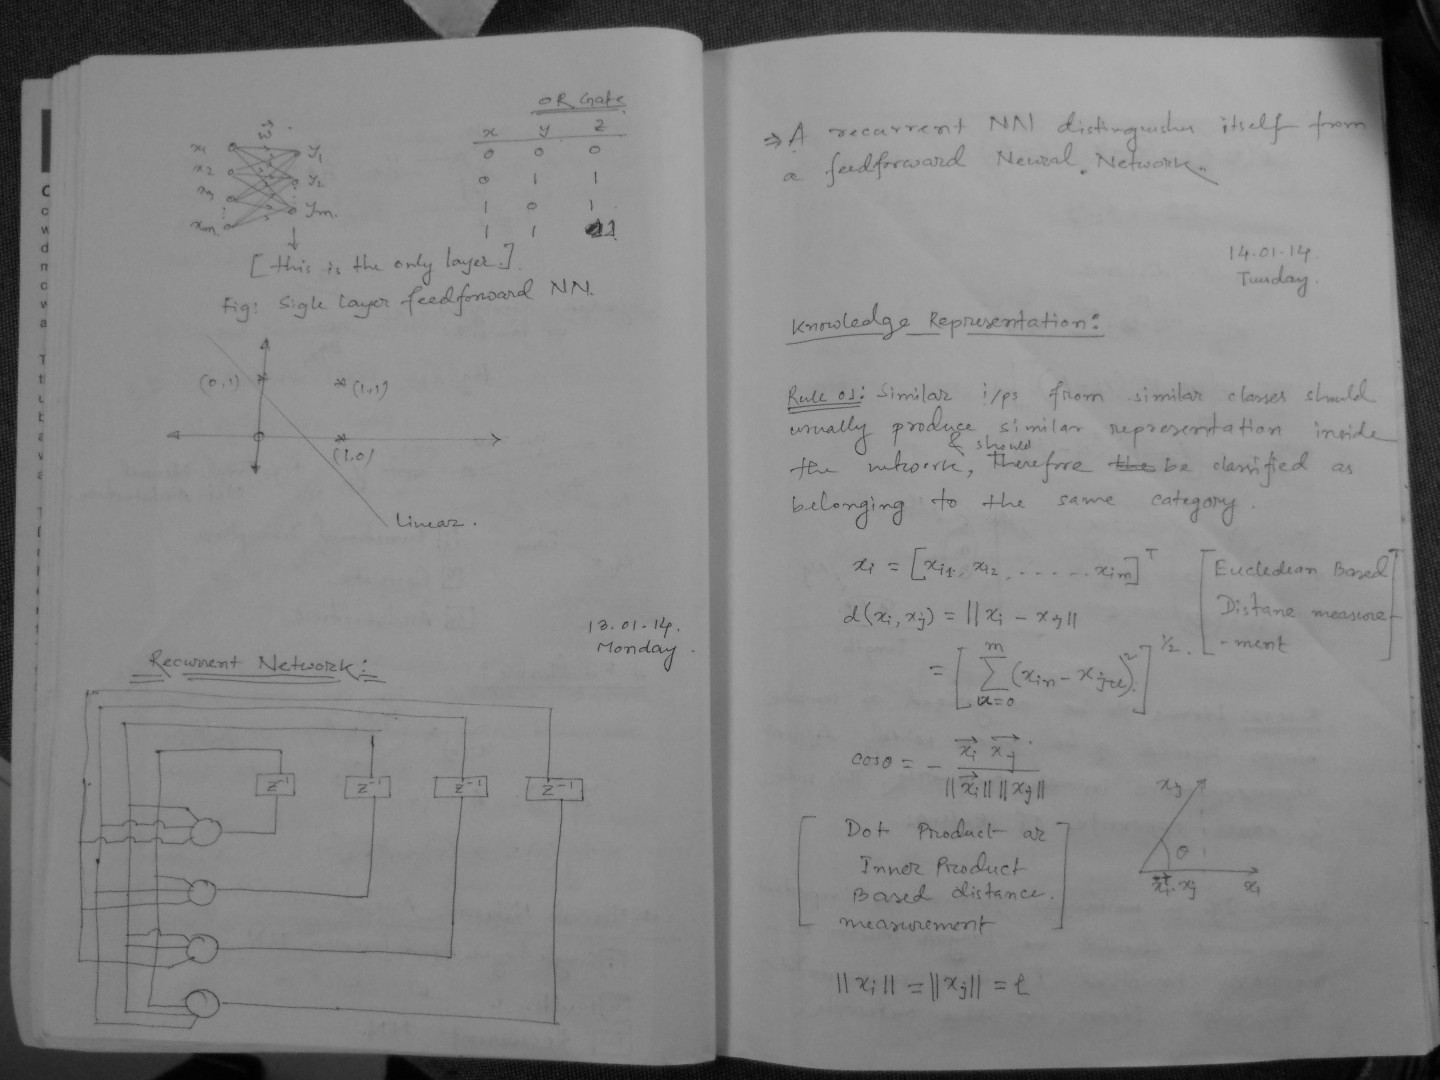 OR Gate
x y z
0 0 0
0 1 1
1 0 1
1 1 1
x1
x2
xm
y1
y2
ym.
[this is the only layer.]
Fig: Sigle Layer feedforward NN.
(0,1)
(1,1)
(1,0)
Linear.
13.01.14.
Monday.
Recurrent Network:
z⁻¹ z⁻¹ z⁻¹ z⁻¹
⇒ A recurrent NN distinguishes itself from
a feedforward Neural Network.
14.01.14.
Tuesday.
Knowledge Representation:
Rule 01: Similar i/ps from similar classes should
usually produce similar representation inside
& should
the network, Therefore be classified as
belonging to the same category.
xi = [xi1, xi2, ...... xim]ᵀ
[Eucledean Based
Distane measure
-ment]
d(xi, xj) = ||xi - xj||
= [ Σ (xin - xjn)² ]^1/2.
m
n=0
cosθ = - xi xj
||xi|| ||xj||
[Dot Product or
Inner Product
Based distance.
measurement]
xj
θ
xi.xj xi
||xi|| = ||xj|| = 1